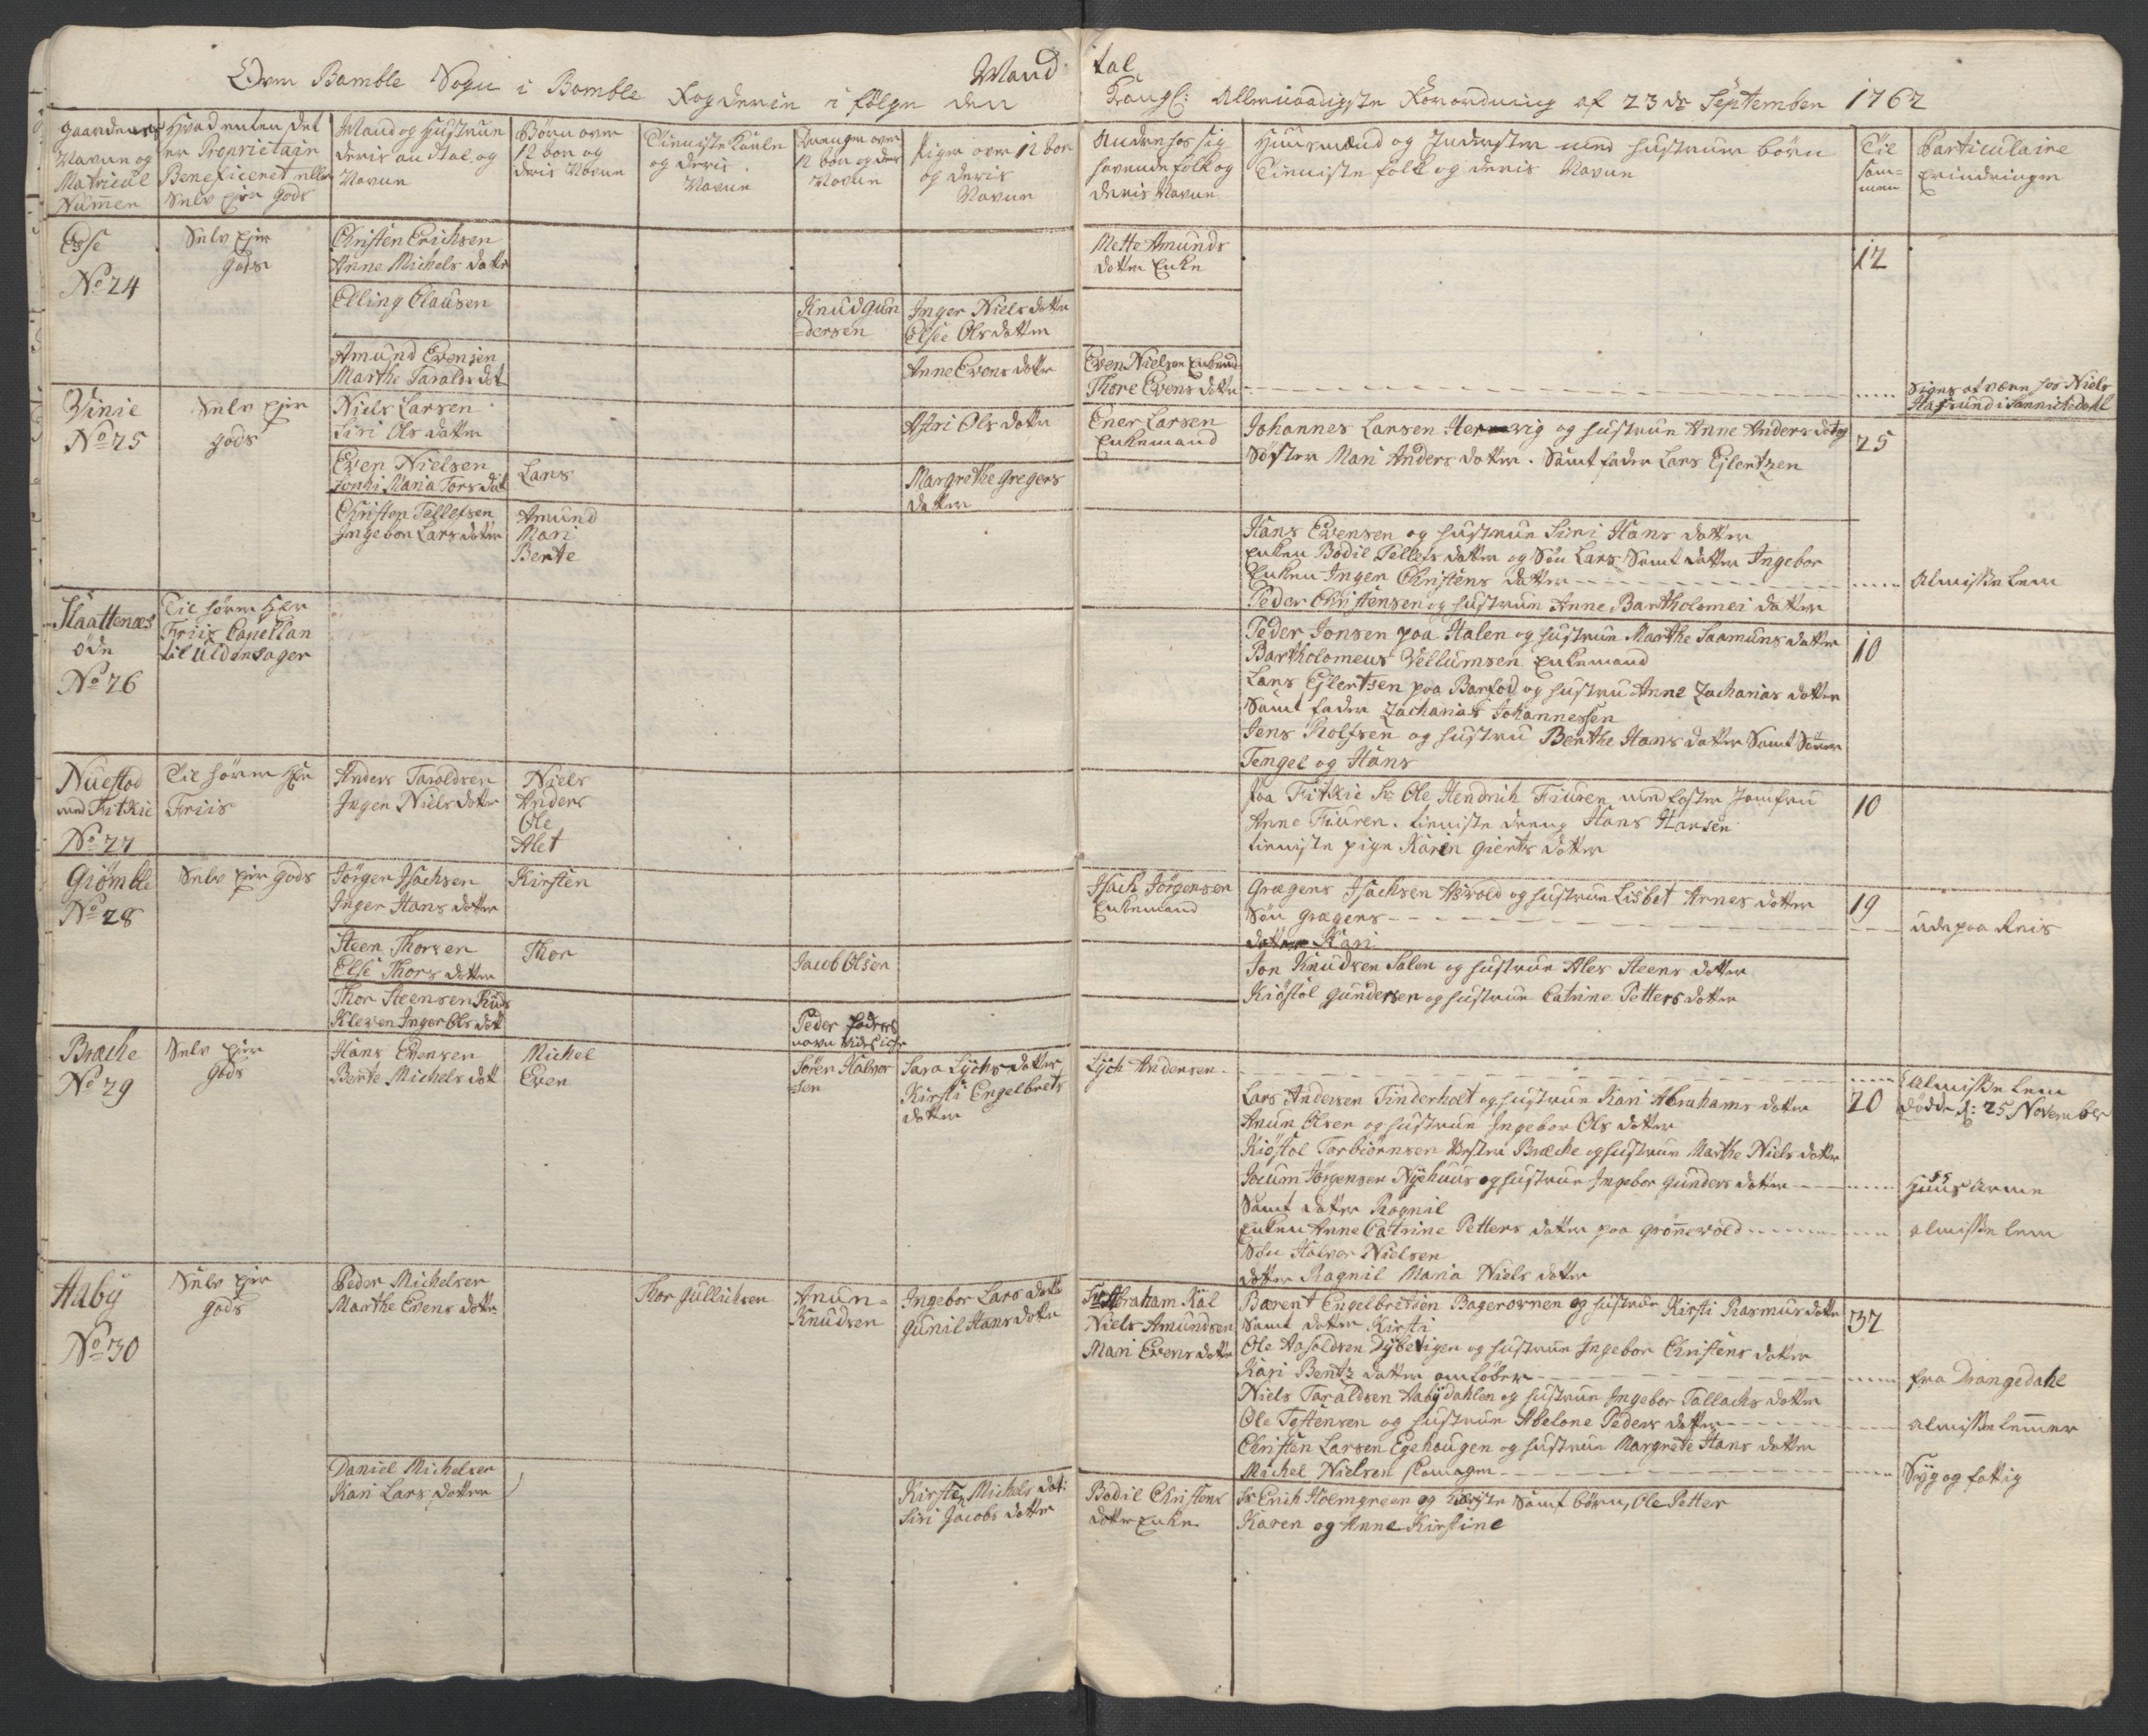 Mand tal
Over Bamble Sogn i Bamble Fogderie i følge den Kongl: Allernaadigste Forordning af 23de September 1762
Gaardenes Navne og Matricul Nummer
Hvad enten det er Proprietair Beneficeret eller Selv Ejer Gods
Mand og Hustrue deris an tal og Navne
Børn over 12 aar og deris Navne
Tieniste Karle og deris Navne
Drenge over 12 aar og deris Navne
Piger over 12 aar og deris Navne
Andre hos sig havende folk og deris Navne
Huusmænd og Inderster med Hustruer børn Tieniste folk og deris Navne
Til sam-men
Particulaire Erindringer
No 24
Selv Ejer Gods
Christen Erichsen
Anne Michels datter
Mette Amunds
datter Enke
12
Elling Clausen
Knud Gun
=dersen
Inger Niels datter
Else Ols datter
Amund Evensen
Marthe Taralds dot
Anne Evens datter
Even Nielsen Enkemand
Thore Evens datter
Siges at være hos Niels
i Sannikedahl
Vinie
No 25
Selv Ejer
Gods
Niels Larsen
Siri Ols datter
Astri Ols datter
Ener Larsen
Enkemand
Johannes Larsen Herwig og hustrue Anne Anders dat og
Søster Mari Anders datter. Samt fader Lars Ejlertzen
25
Even Nielsen
Maria Tors dat
Lars
Margrethe Gregers
datter
Christen Tellefsen
Ingebor Lars datter
Amund
Mari
Berte
Hans Evensen og hustrue Siri Hans datter
Enken Bodil Tellefs datter og Søn Lars Samt datter Ingebor
Enken Inger Christens datter
Almisse Lem
Peder Christensen og hustrue Anne Bartholomei datter
Slaattenæs
øde
No 26
Til hører Hr
Friis Capellan
til Uldensager
Peder Jonsen paa Halen og hustrue Marthe Saamuns datter
Bartholomeus Vellumsen Enkemand
Lars Ejlertsen paa Barfod og hustru Anne Zacharias datter
Samt fader Zacharias Johannessen
Jens Rolfsen og hustru Berthe Hans datter Samt Sønner
Tengel og Hans
10
Nuestad
med Fitkie
No 27
Til hører Hr
Friis
Anders Taraldsen
Inger Niels datter
Niels
Anders
Ole
Alet
paa Fitkie Sr Ole Hendrich Fiuren med søster Jomfru
Anne Fiuren. tieniste dreng Hans Hansen
tieniste pige Karen Gierts datter
10
Giømble
No 28
Selv Ejer Gods
Jørgen Isachsen
Inger Hans datter
Kirsten
Isach Jørgensen
Enkemand
Grægers Isachsen Aswold og hustrue Lisbet Arnes datter
Søn Grægers
datter Kari
19
ude paa Reis
Steen Thorsen
Else Thors datter
Thor
Jacob Olsen
Jon Knudsen Salen og hustrue Ales Steens datter
Kiøstol Gundersen og hustrue Catrine Petters datter
Thor Steensen
Kleven Inger Ols dott
Peder faders
navn
Bræche
No 29
Selv Ejer
Gods
Hans Evensen
Berte Michels dott
Michel
Even
Søren Halvor
=sen
Sara Lychs datter
Kirsti Engelbrets
datter
Lych Andersen
Almisse Lem
Døde d: 25 November
Lars Andersen Tinderholt og hustrue Kari Abrahams datter
Anun Olsen og hustrue Ingebor Ols datter
Kiøstol Torbiørnsen Vestre Bræche og hustrue Marthe Niels datter
Jocum Jørgensen Nyehuus og hustrue Ingebor Gunders datter
Samt datter Ragnil
Enken Anne Catrine Petters datter paa Grønnevold
Søn Halvor Nielsen
datter Ragnil Maria Niels datter
20
Huus Arme
almisse Lem
Aaby
No 30
Selv Ejer
Gods
Peder Michelsen
Marthe Evens datter
Thor Gullichsen
Anun
Knudsen
Ingebor Lars datter
Gunil Hans datter
Sr Abraham Käl
Niels Amundsen
Mari Evens datter
Bærent Engelbretsen Bagerovnen og hustrue Kirsti Rasmus datter
Samt datter Kirsti
Ole Aasoldsen Dybevigen og hustrue Ingebor Christens datter
Kari Bentz datter omløber
Niels Taraldsen Aabydahlen og hustrue Ingebor Tallachs datter
Ole Tostensen og hustrue Abelone Peders datter
Christen Larsen Egehaugen og hustrue Margrete Hans datter
Michel Nielsen skomager
37
fra Drangedahl
almisse lemmer
Syg og fattig
Daniel Michelsen
Kari Lars datter
Kirsten Michels dat:
Siri Jacobs datter
Bodil Christens
datter Enke
Sr Erich Holmgreen og Kiereste Samt børn, Ole Petter
Karen og Anne Kirstine